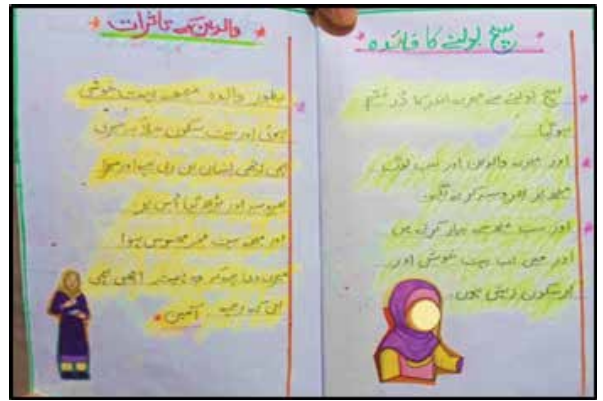 سچ بولنے کا فائدہ
سچ بولنے سے میرے اندر کا ڈر ختم
ہوگیا
اور میرے والدین اور سب لوگ
مجھ پر بھروسہ کرنے لگے
اور سب مجھ سے پیار کرتے ہیں
اور میں اب بہت خوش اور
پرسکون رہتی ہوں۔
والدین کے تاثرات
بطور والدہ مجھے بہت خوشی
ہوئی اور بہت سکون ملا کہ میری
بچی اچھی انسان بن رہی ہے اور میرا
بھروسہ اور بڑھ گیا اس پر
اور مجھے بہت فخر محسوس ہوا
میری دعا ہے کہ وہ بہت اچھی بچی
بن کر رہے۔ آمین